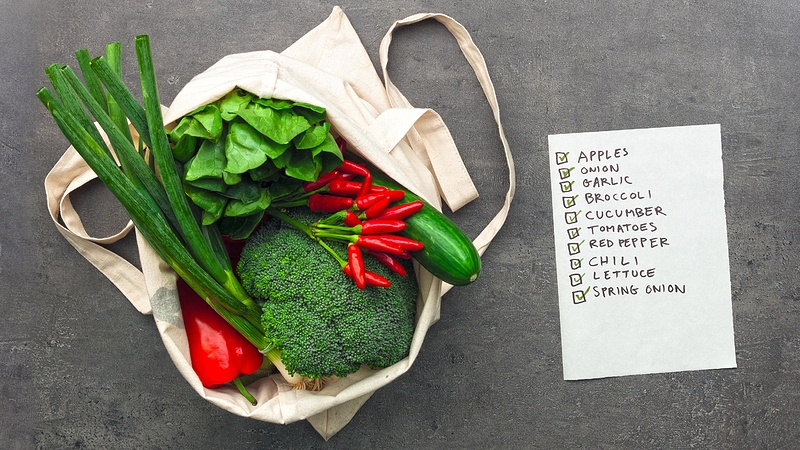 APPLES
ONION
GARLIC
BROCCOLI
CUCUMBER
TOMATOES
RED PEPPER
CHILI
LETTUCE
SPRING ONION